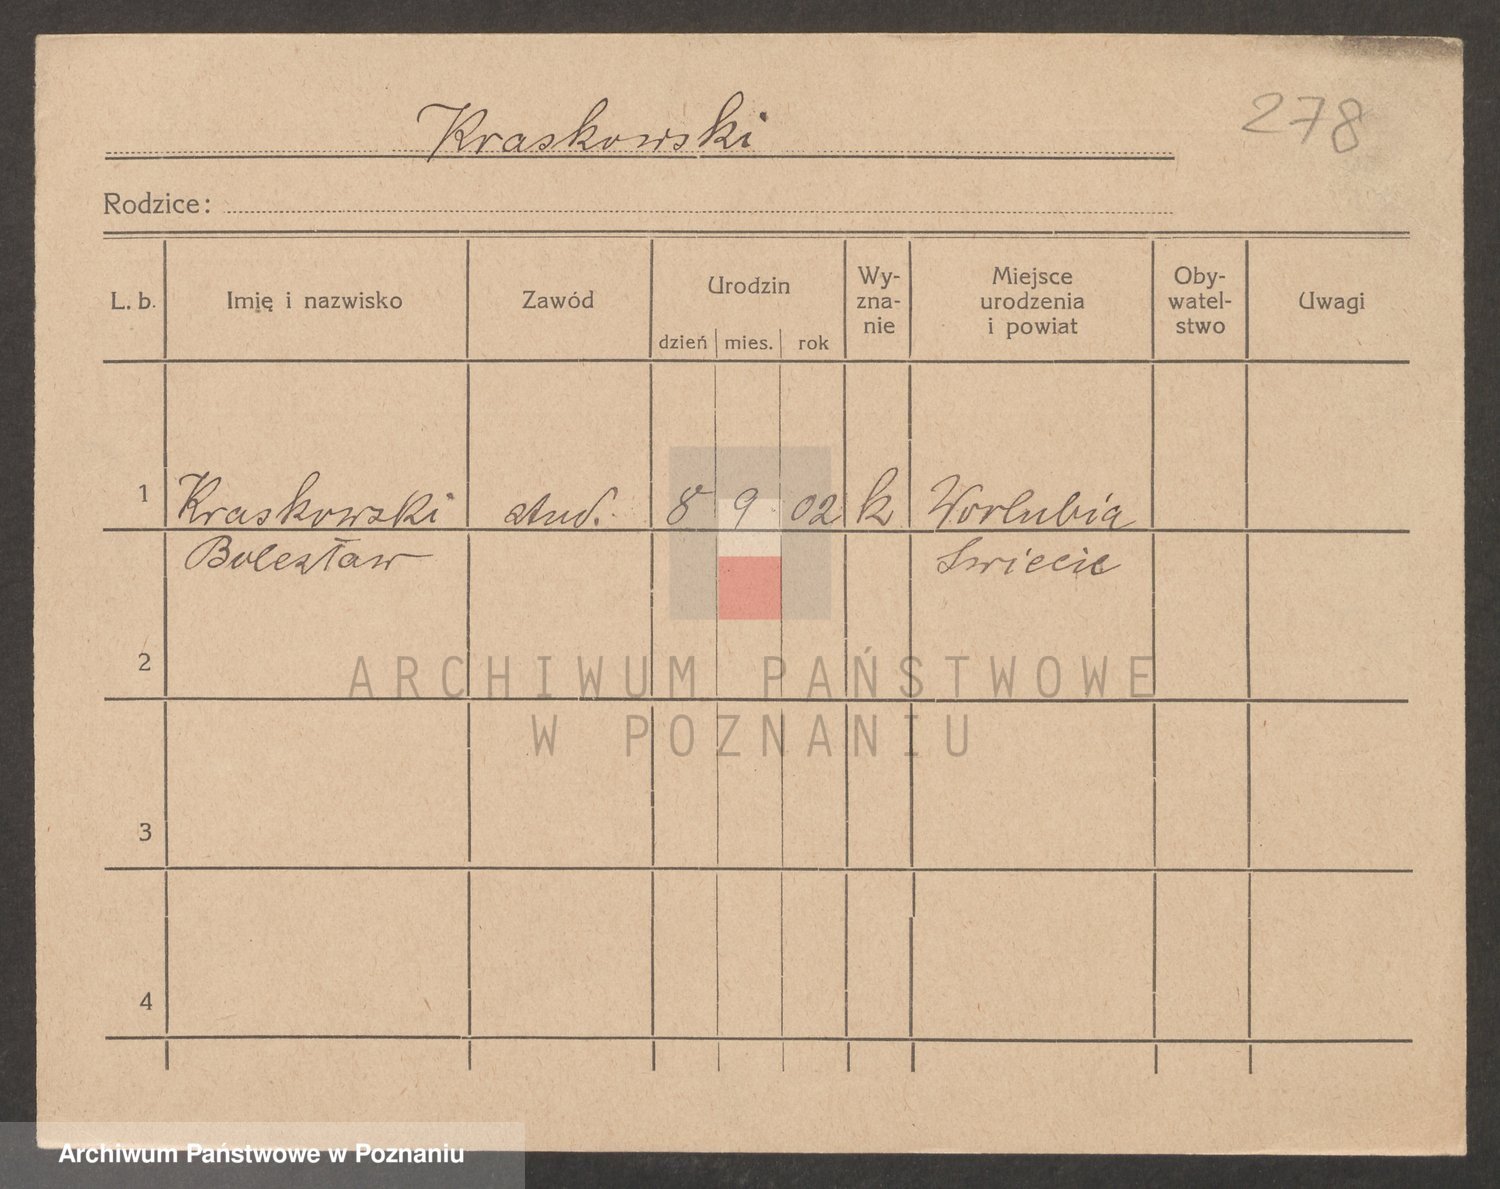 Kraskowski
278
Rodzice:
L. b.
Imię i nazwisko
Zawód
Urodzin
dzień
mies.
rok
Wy-
zna-
nie
Miejsce
urodzenia
i powiat
Oby-
watel-
stwo
Uwagi
1
Kraskowski stud. 8 9 02 k Worlubia
Bolesław Swiecie
2
ARCHIWUM PAŃSTWOWE
W POZNANIU
3
4
Archiwum Państwowe w Poznaniu